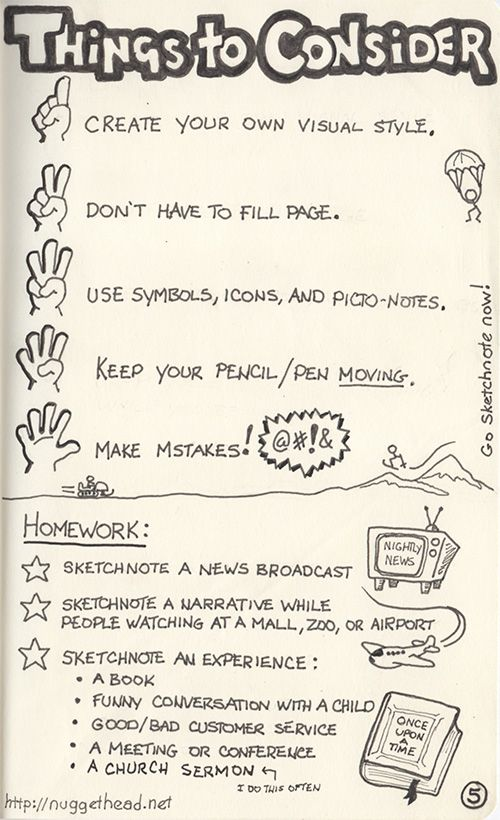 THINGS TO CONSIDER
CREATE YOUR OWN VISUAL STYLE.
DON'T HAVE TO FILL PAGE.
USE SYMBOLS, ICONS, AND PICTO-NOTES.
KEEP YOUR PENCIL/PEN MOVING.
MAKE MSTAKES!
@#!&
Go Sketchnote now!
HOMEWORK:
SKETCHNOTE A NEWS BROADCAST
NIGHTLY
NEWS
SKETCHNOTE A NARRATIVE WHILE
PEOPLE WATCHING AT A MALL, ZOO, OR AIRPORT
SKETCHNOTE AN EXPERIENCE:
• A BOOK
• FUNNY CONVERSATION WITH A CHILD
• GOOD/BAD CUSTOMER SERVICE
• A MEETING OR CONFERENCE
• A CHURCH SERMON
I DO THIS OFTEN
ONCE
UPON
A
TIME
http://nuggethead.net
5